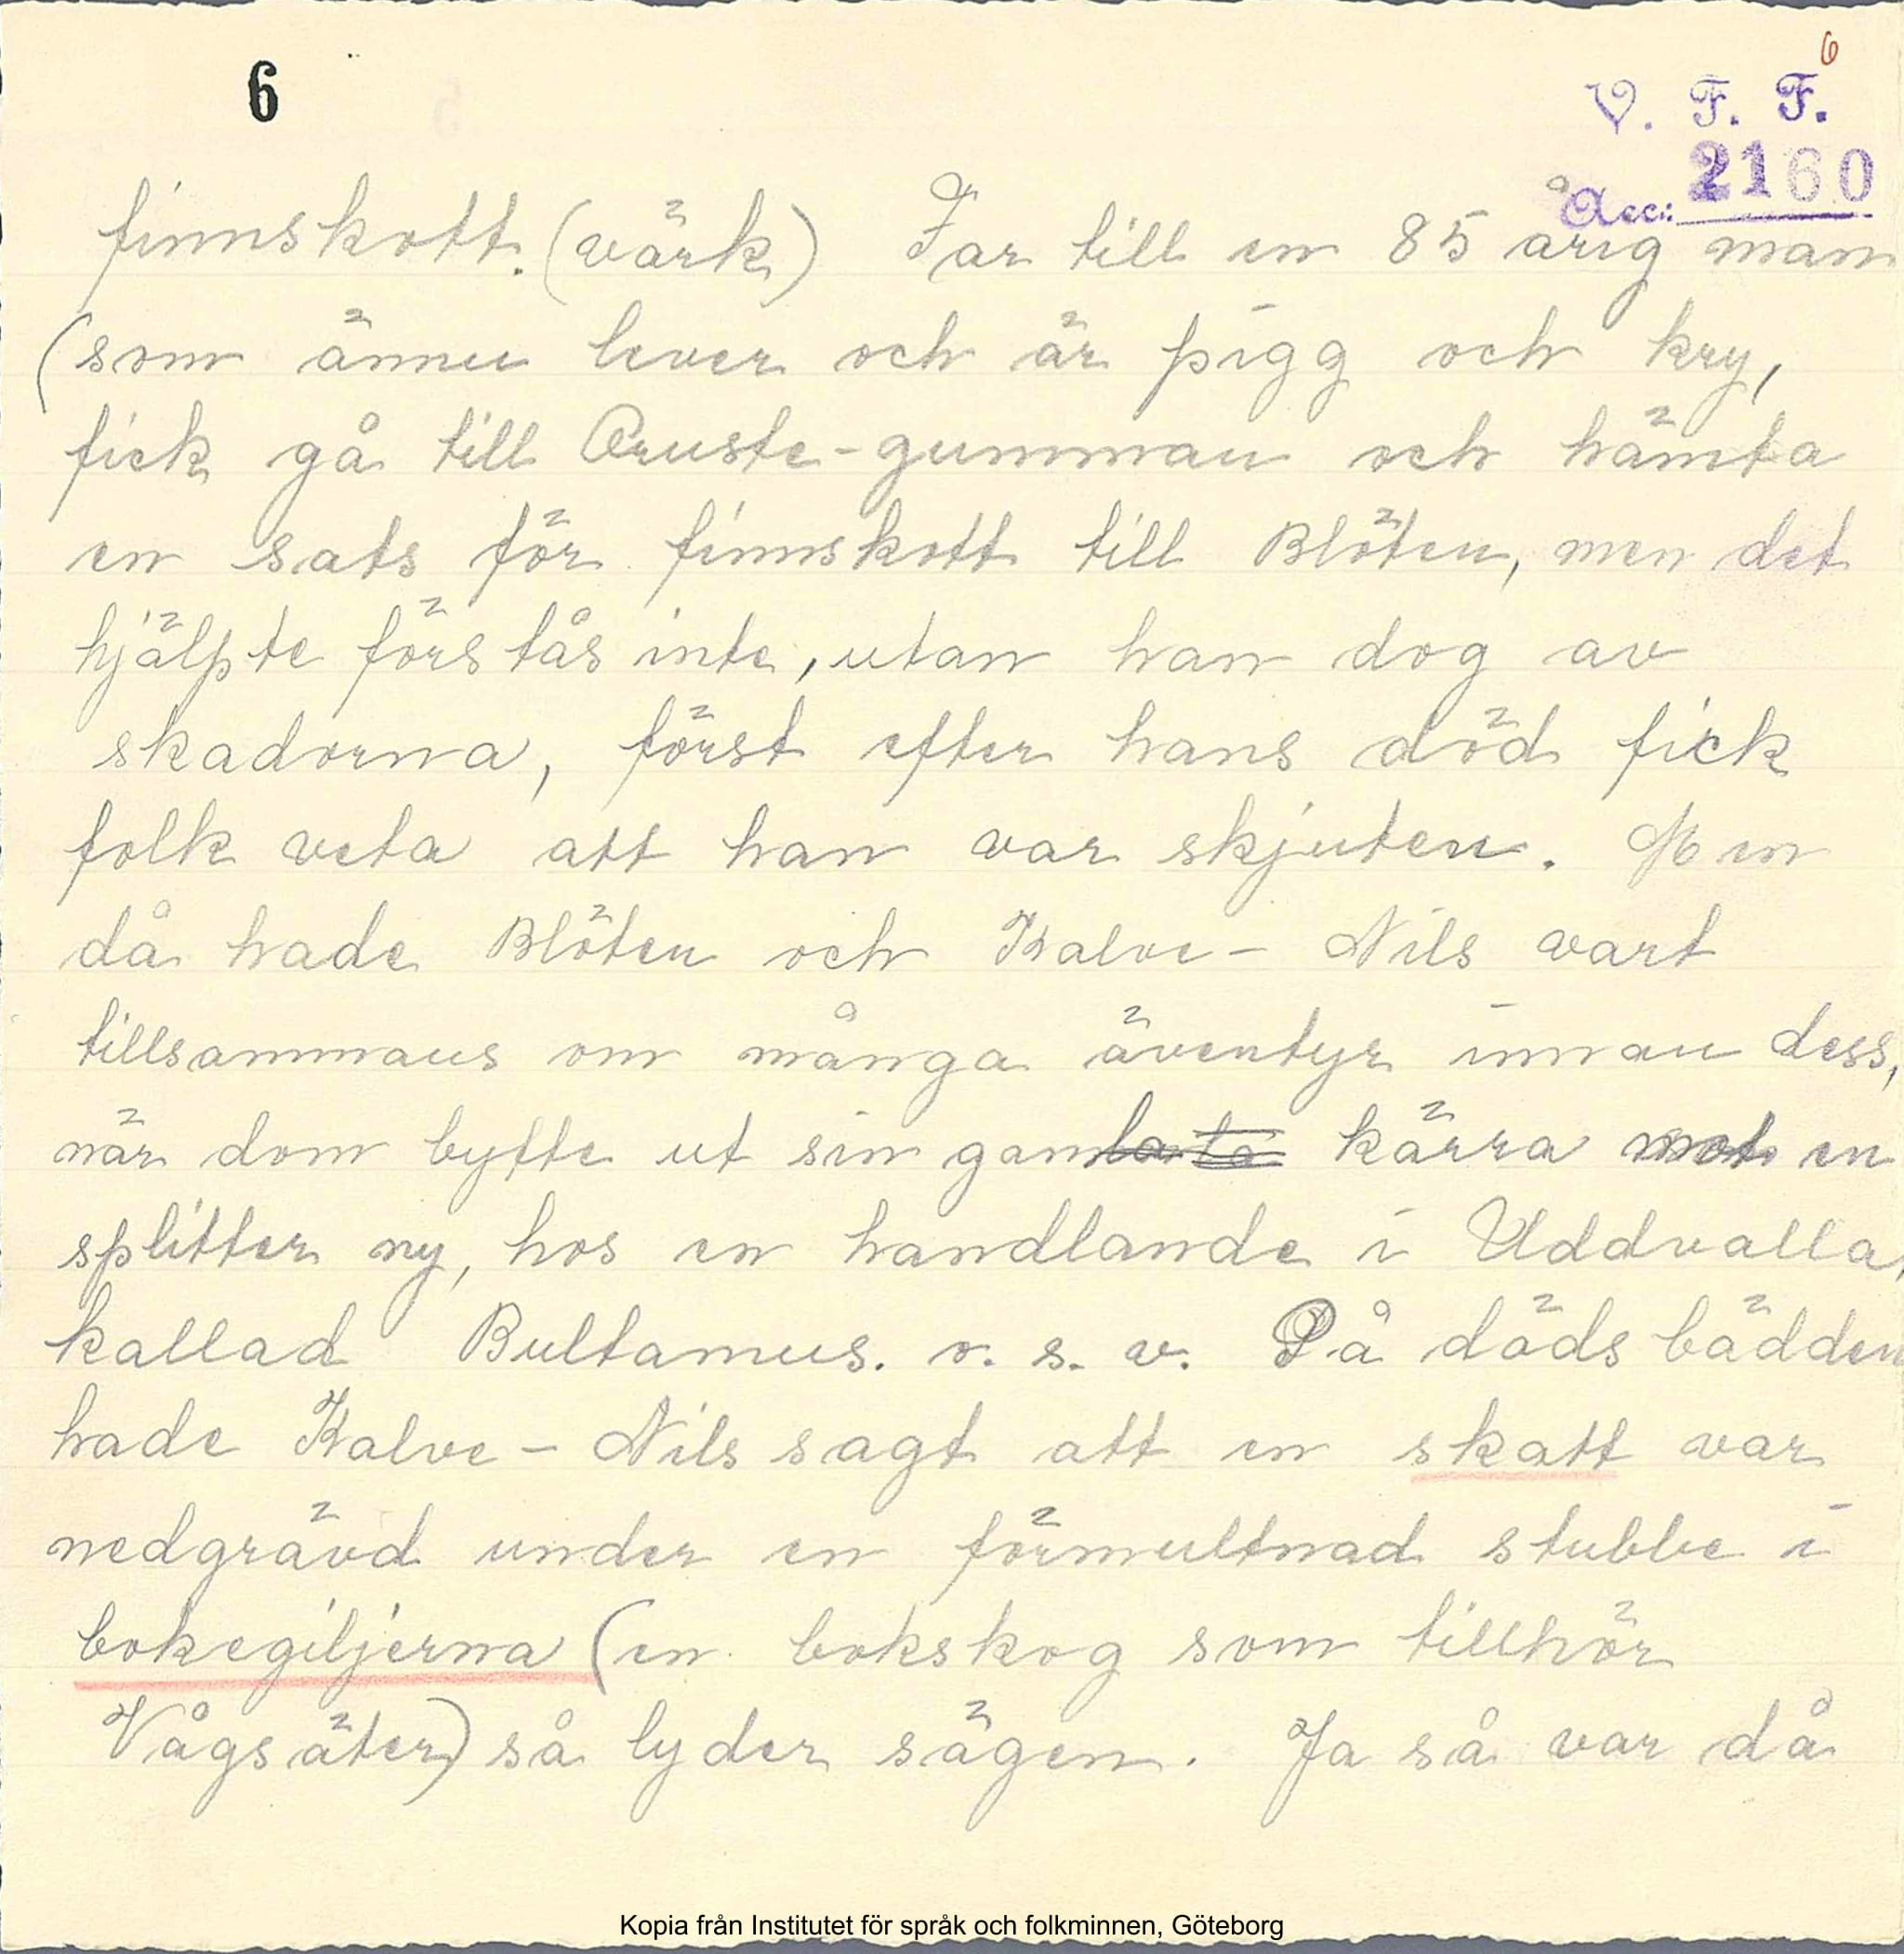 6
6
V. F. F.
2160
Acc:
finnskott. (värk) Far till en 85 årig man
(som ännu lever och är pigg och kry,
fick gå till Oruste-gumman och hämta
en sats för finnskott till Blöten, men det
hjälpte förstås inte, utan han dog av
skadorna, först efter hans död fick
folk veta att han var skjuten. Men
då hade Blöten och Kalve- Nils vart
tillsammans om många äventyr innan dess,
när dom bytte ut sin gamla kärra mot en
splitter ny, hos en handlande i Uddvalla,
kallad Bultamus. o. s. v. På döds bädden
hade Kalve- Nils sagt att en skatt var
nedgrävd under en förmultnad stubbe i
bokegiljerna (en bokskog som tillhör
Vågsäter) så lyder sägen. Ja så var då
Kopia från Institutet för språk och folkminnen, Göteborg